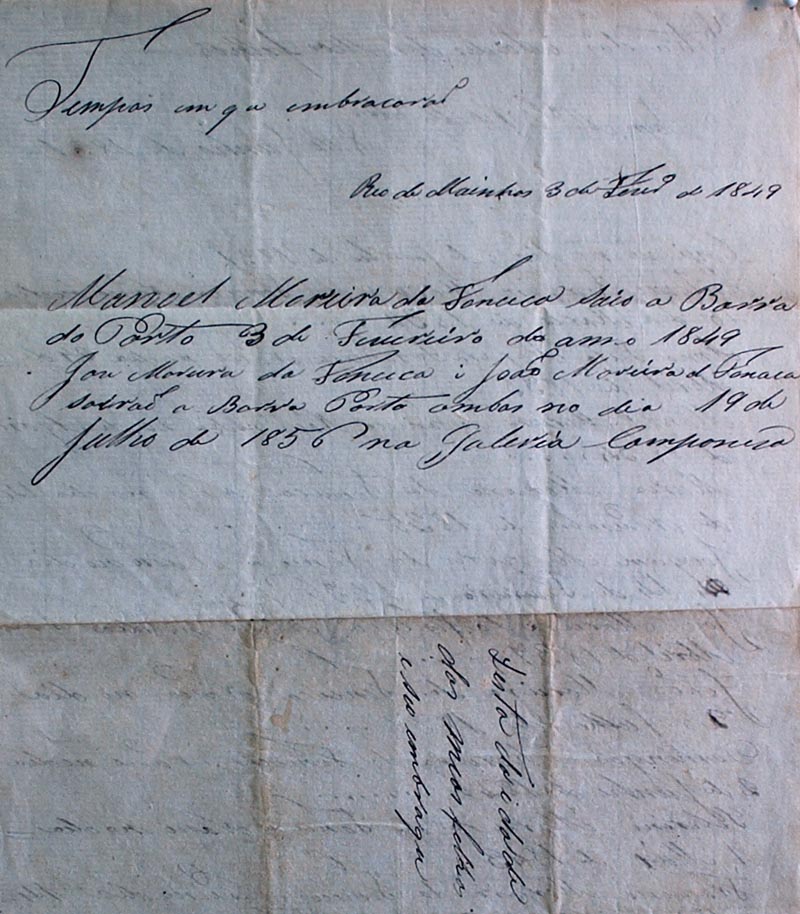 Tempos em qu embracaraõ
Rio de Moinhos 3 de Fevrº de 1849
Manoel Moreira da Fonceca saio a Barra
do Porto 3 de Feuereiro do anno 1849
Joze Moreira da Fonceca i João Moreira d Fonceca
sairaõ a Barra Porto ambos no dia 19 de
Julho de 1856 na Galeria Componeza
Lista da idade
dos meos filhos
e seo embraque